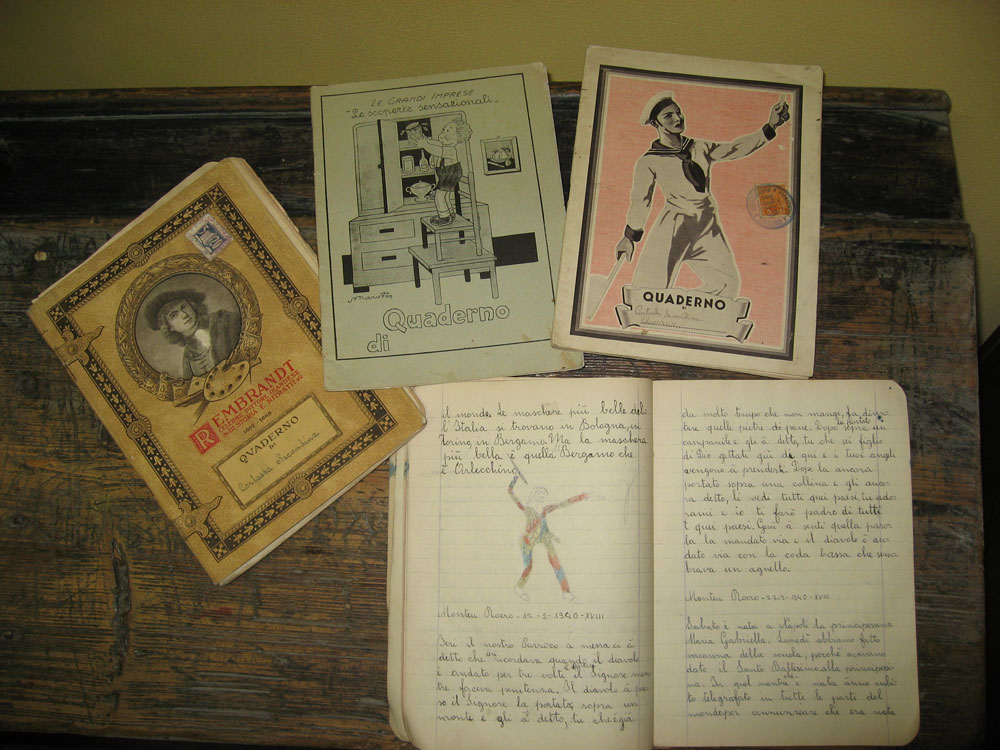 LE GRANDI IMPRESE
"Le scoperte sensazionali"
Quaderno
di
QUADERNO
REMBRANDT
CELEBRE PITTORE
DI STORIA E
1606-1669
QVADERNO
DI
Secondina
il mondo. Le maschere più belle del-
l'Italia si trovano in Bologna, in
Torino, in Bergamo. Ma la maschera
più bella è quella Bergamo che
è Arlecchino
Monteu Roero - 12-2-1940-XVIII
Ieri il nostro Parroco a messa ci à
detto che ricordava quando il diavolo
è andato per tre volte il Signore men-
tre faceva penitenza. Il diavolo à pre-
so il Signore la portato sopra un
monte e gli à detto, tu che è già
da molto tempo che non mangi, fa diven-
tare quelle pietre di pane. Dopo la portato sopra un
campanile e gli à detto, tu che sei figlio
di Dio gettati giù di qui e i tuoi angeli
vengono à prenderti. Dopo la ancora
portato sopra una collina e gli anco-
ra detto, li vedi tutti quei paesi, tu ado-
rami e io te farò padro di tutti
t quei paesi. Gesù à sentì quella paro-
la la mandato via e il diavolo è an-
dato via con la coda bassa che sem-
brava un agnello.
Monteu Roero - 27-2-1940-XVIII
Sabato è nata a Napoli la principessina
Maria Gabriella. Lunedì abbiamo fatto
vacanza della scuola, perchè avevano
dato il Santo Battesimo alla principessi-
na. In quel mentre che è nata ànno subi-
to telegrafato in tutte le parte del
mondo per annunziare che era nata